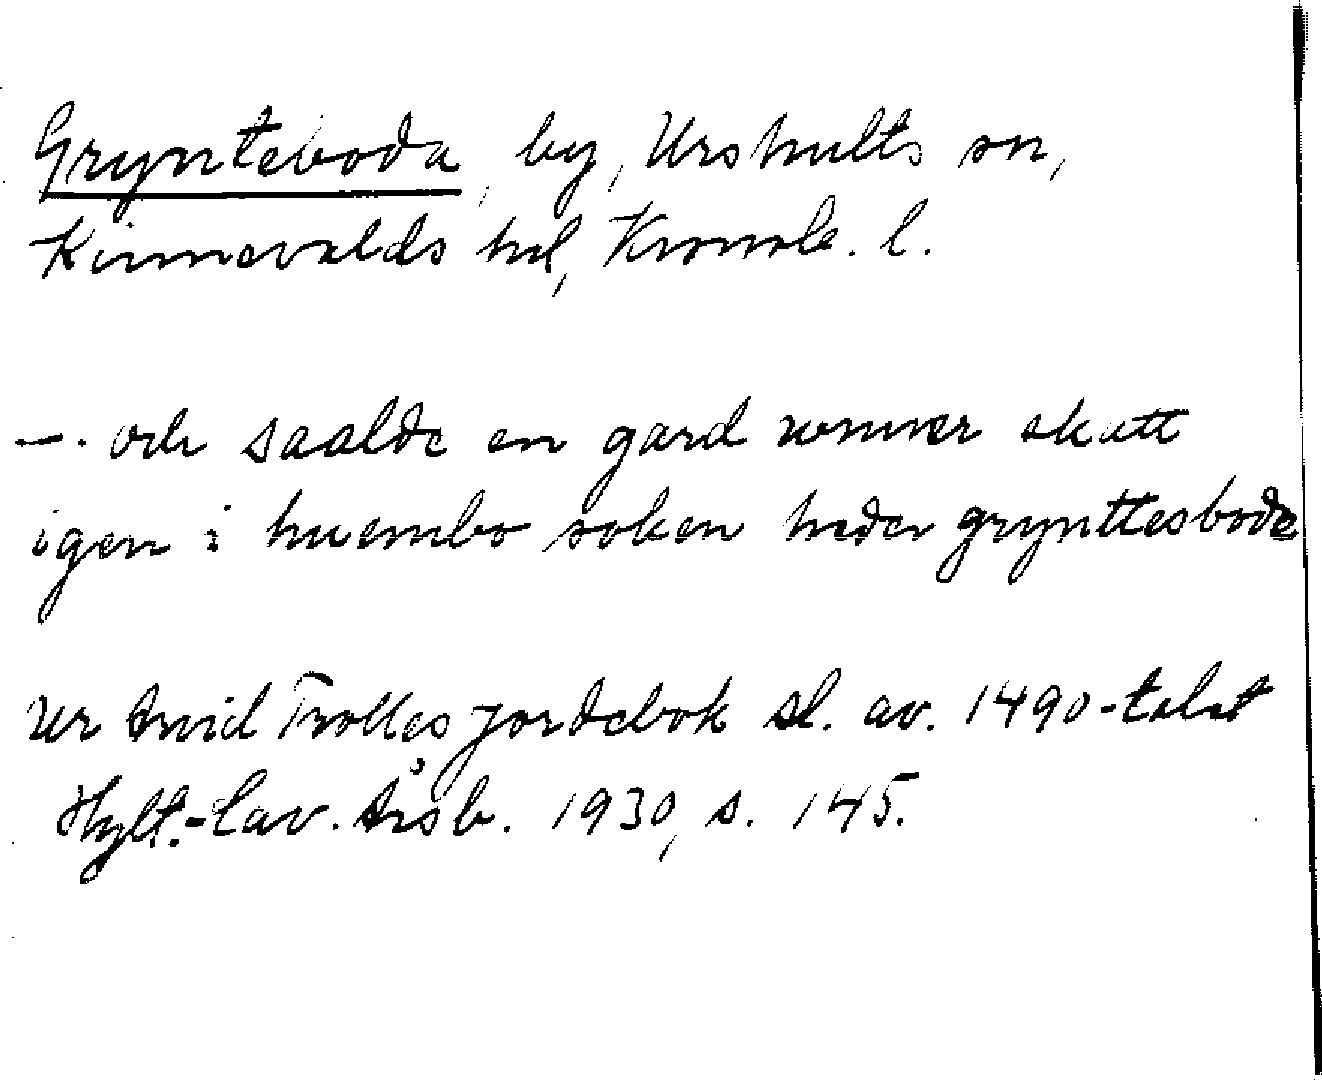 Grynteboda, by, Urshults sn,
Kinnevalds hd, Kronob. l.
—. och saalde en gard
skatt
igen i huembo soken heder grynttesbode
Ur Arvid Trolles jordebok sl. av. 1490-talet
Hylt.-Cav. Årsb. 1930, s. 145.